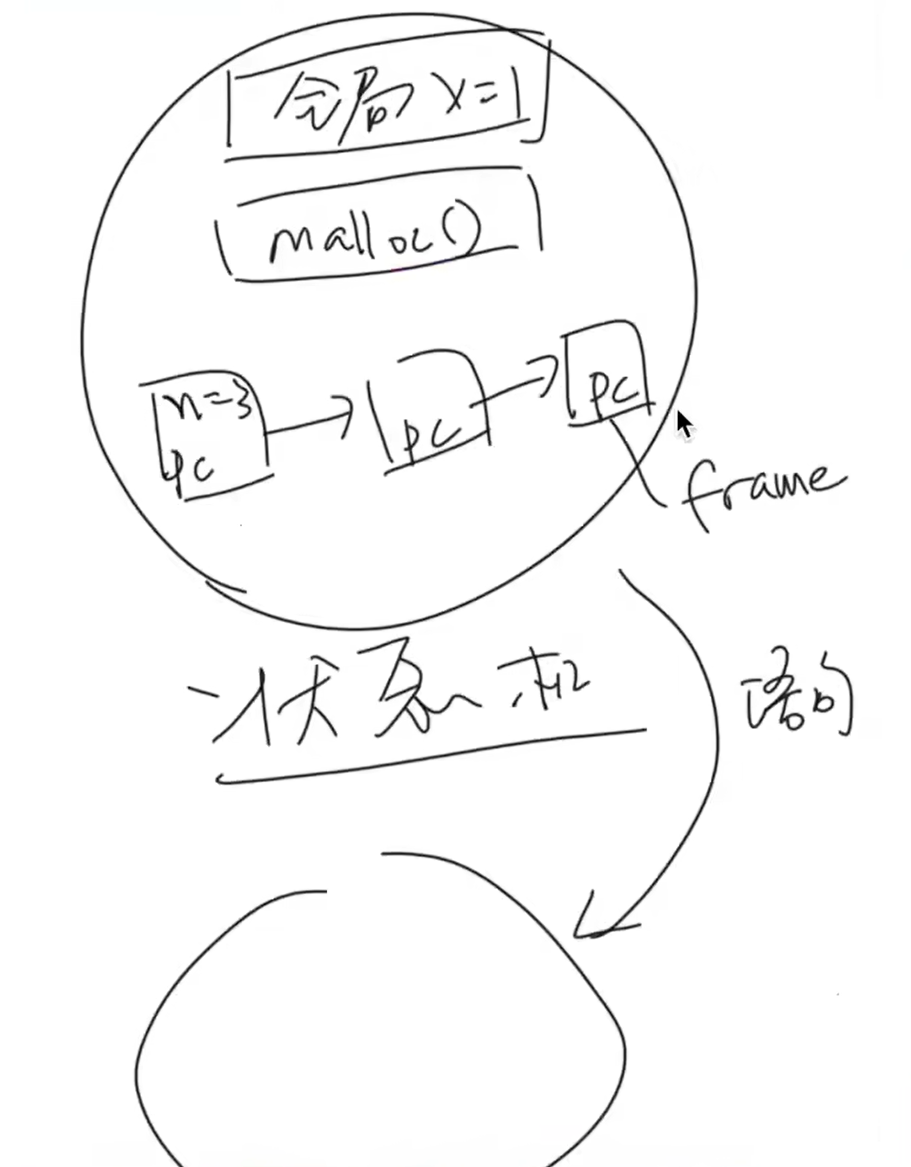 全局 x=1
malloc()
n=3
pc
pc
pc
frame
状态机
语句